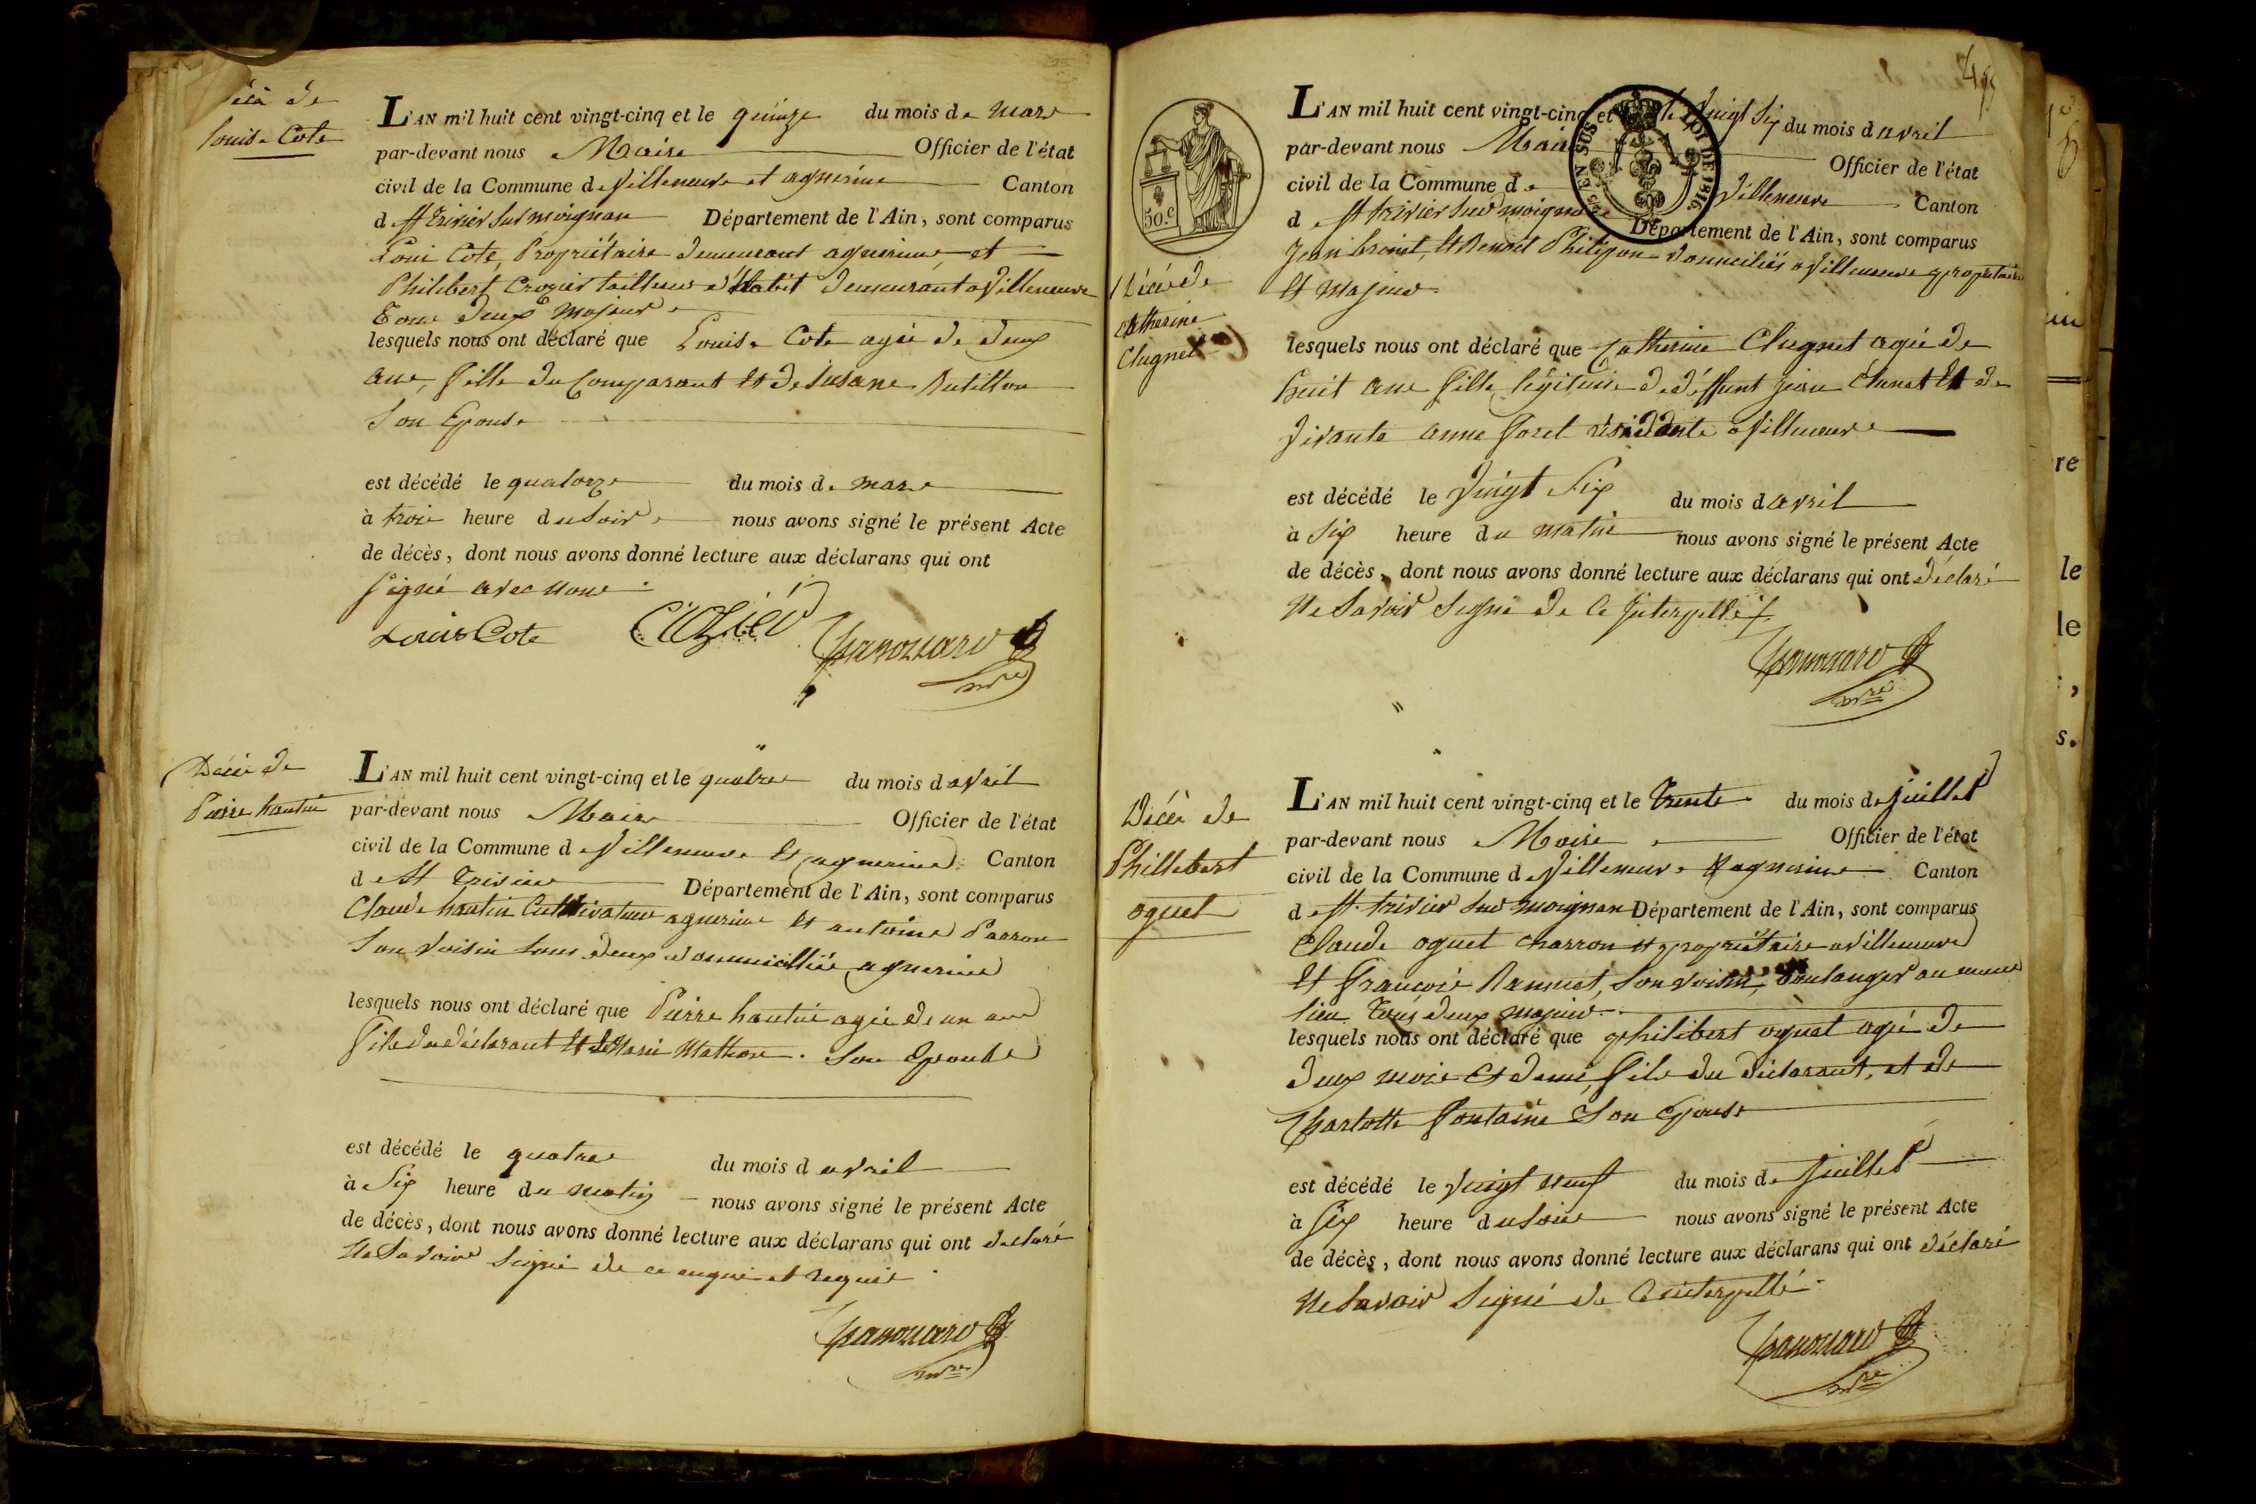 décè de
Louise Cote
L'AN mil huit cent vingt-cinq et le quinze du mois de mars
par-devant nous Maire Officier de l'état
civil de la Commune de Villeneuve et agnerine Canton
de St Trivier sur moignan Département de l'Ain, sont comparus
Loui Cote, Propriétaire demeurant agnerine, et
Philibért Crozier tailleur d'habit demeurant a Villeneuve
Tous deux majeur
lesquels nous ont déclaré que Louise Cote agée de deux
ans, fille du Comparant et de Susane
Son Epouse
est décédé le quatorze du mois de mars
à trois heure du Soir nous avons signé le présent Acte
de décès, dont nous avons donné lecture aux déclarans qui ont
signé avec nous
Louis Cote Crozier
Décè de
Pierre hautin
L'AN mil huit cent vingt-cinq et le quatre du mois d avril
par-devant nous Maire Officier de l'état
civil de la Commune de Villeneuve et agnerine Canton
de St Trivier Département de l'Ain, sont comparus
Claude hautin Cultivateur agnerine et antoine
Son voisin tous deux domicilliés agnerine
lesquels nous ont déclaré que Pierre hautin agée de un ans
fils du déclarant et de Marie Mathon. Son Epouse
est décédé le quatre du mois d avril
à Six heure du matin nous avons signé le présent Acte
de décès, dont nous avons donné lecture aux déclarans qui ont declaré
Ne Savoir Signé de ce et requis
50.c
EN SUS LOI DE 1816
L'AN mil huit cent vingt-cinq et le vingt Six du mois d avril
par-devant nous Maire Officier de l'état
civil de la Commune de Villeneuve Canton
de St trivier sur moignan Département de l'Ain, sont comparus
Jean et Benoit Philipon domiciliés a Villeneuve propriétaire
et majeur
Décè de
Catherine
Clugnet
lesquels nous ont déclaré que Catherine Clugnet agée de
huit ans fille légitime de déffunt jean et de
vivante anne foret résidante a Villeneuve
est décédé le vingt Six du mois d avril
à Six heure du matin nous avons signé le présent Acte
de décès, dont nous avons donné lecture aux déclarans qui ont déclaré
Ne Savoir Signé de ce interpellé
Décè de
Phillibert
oquet
L'AN mil huit cent vingt-cinq et le trente du mois de juillet
par-devant nous Maire Officier de l'état
civil de la Commune de Villeneuve et agnerine Canton
de St trivier sur moignan Département de l'Ain, sont comparus
Claude oquet charron et propriétaire a Villeneuve
et François son voisin, boulanger au meme
lieu tous deux majeur
lesquels nous ont déclaré que philibert oquet agé de
deux mois et demi, fils du déclarant, et de
Charlotte fontaine Son epouse
est décédé le vingt neuf du mois de juillet
à Six heure du Soir nous avons signé le présent Acte
de décès, dont nous avons donné lecture aux déclarans qui ont déclaré
Ne Savoir Signé de Ce interpellé